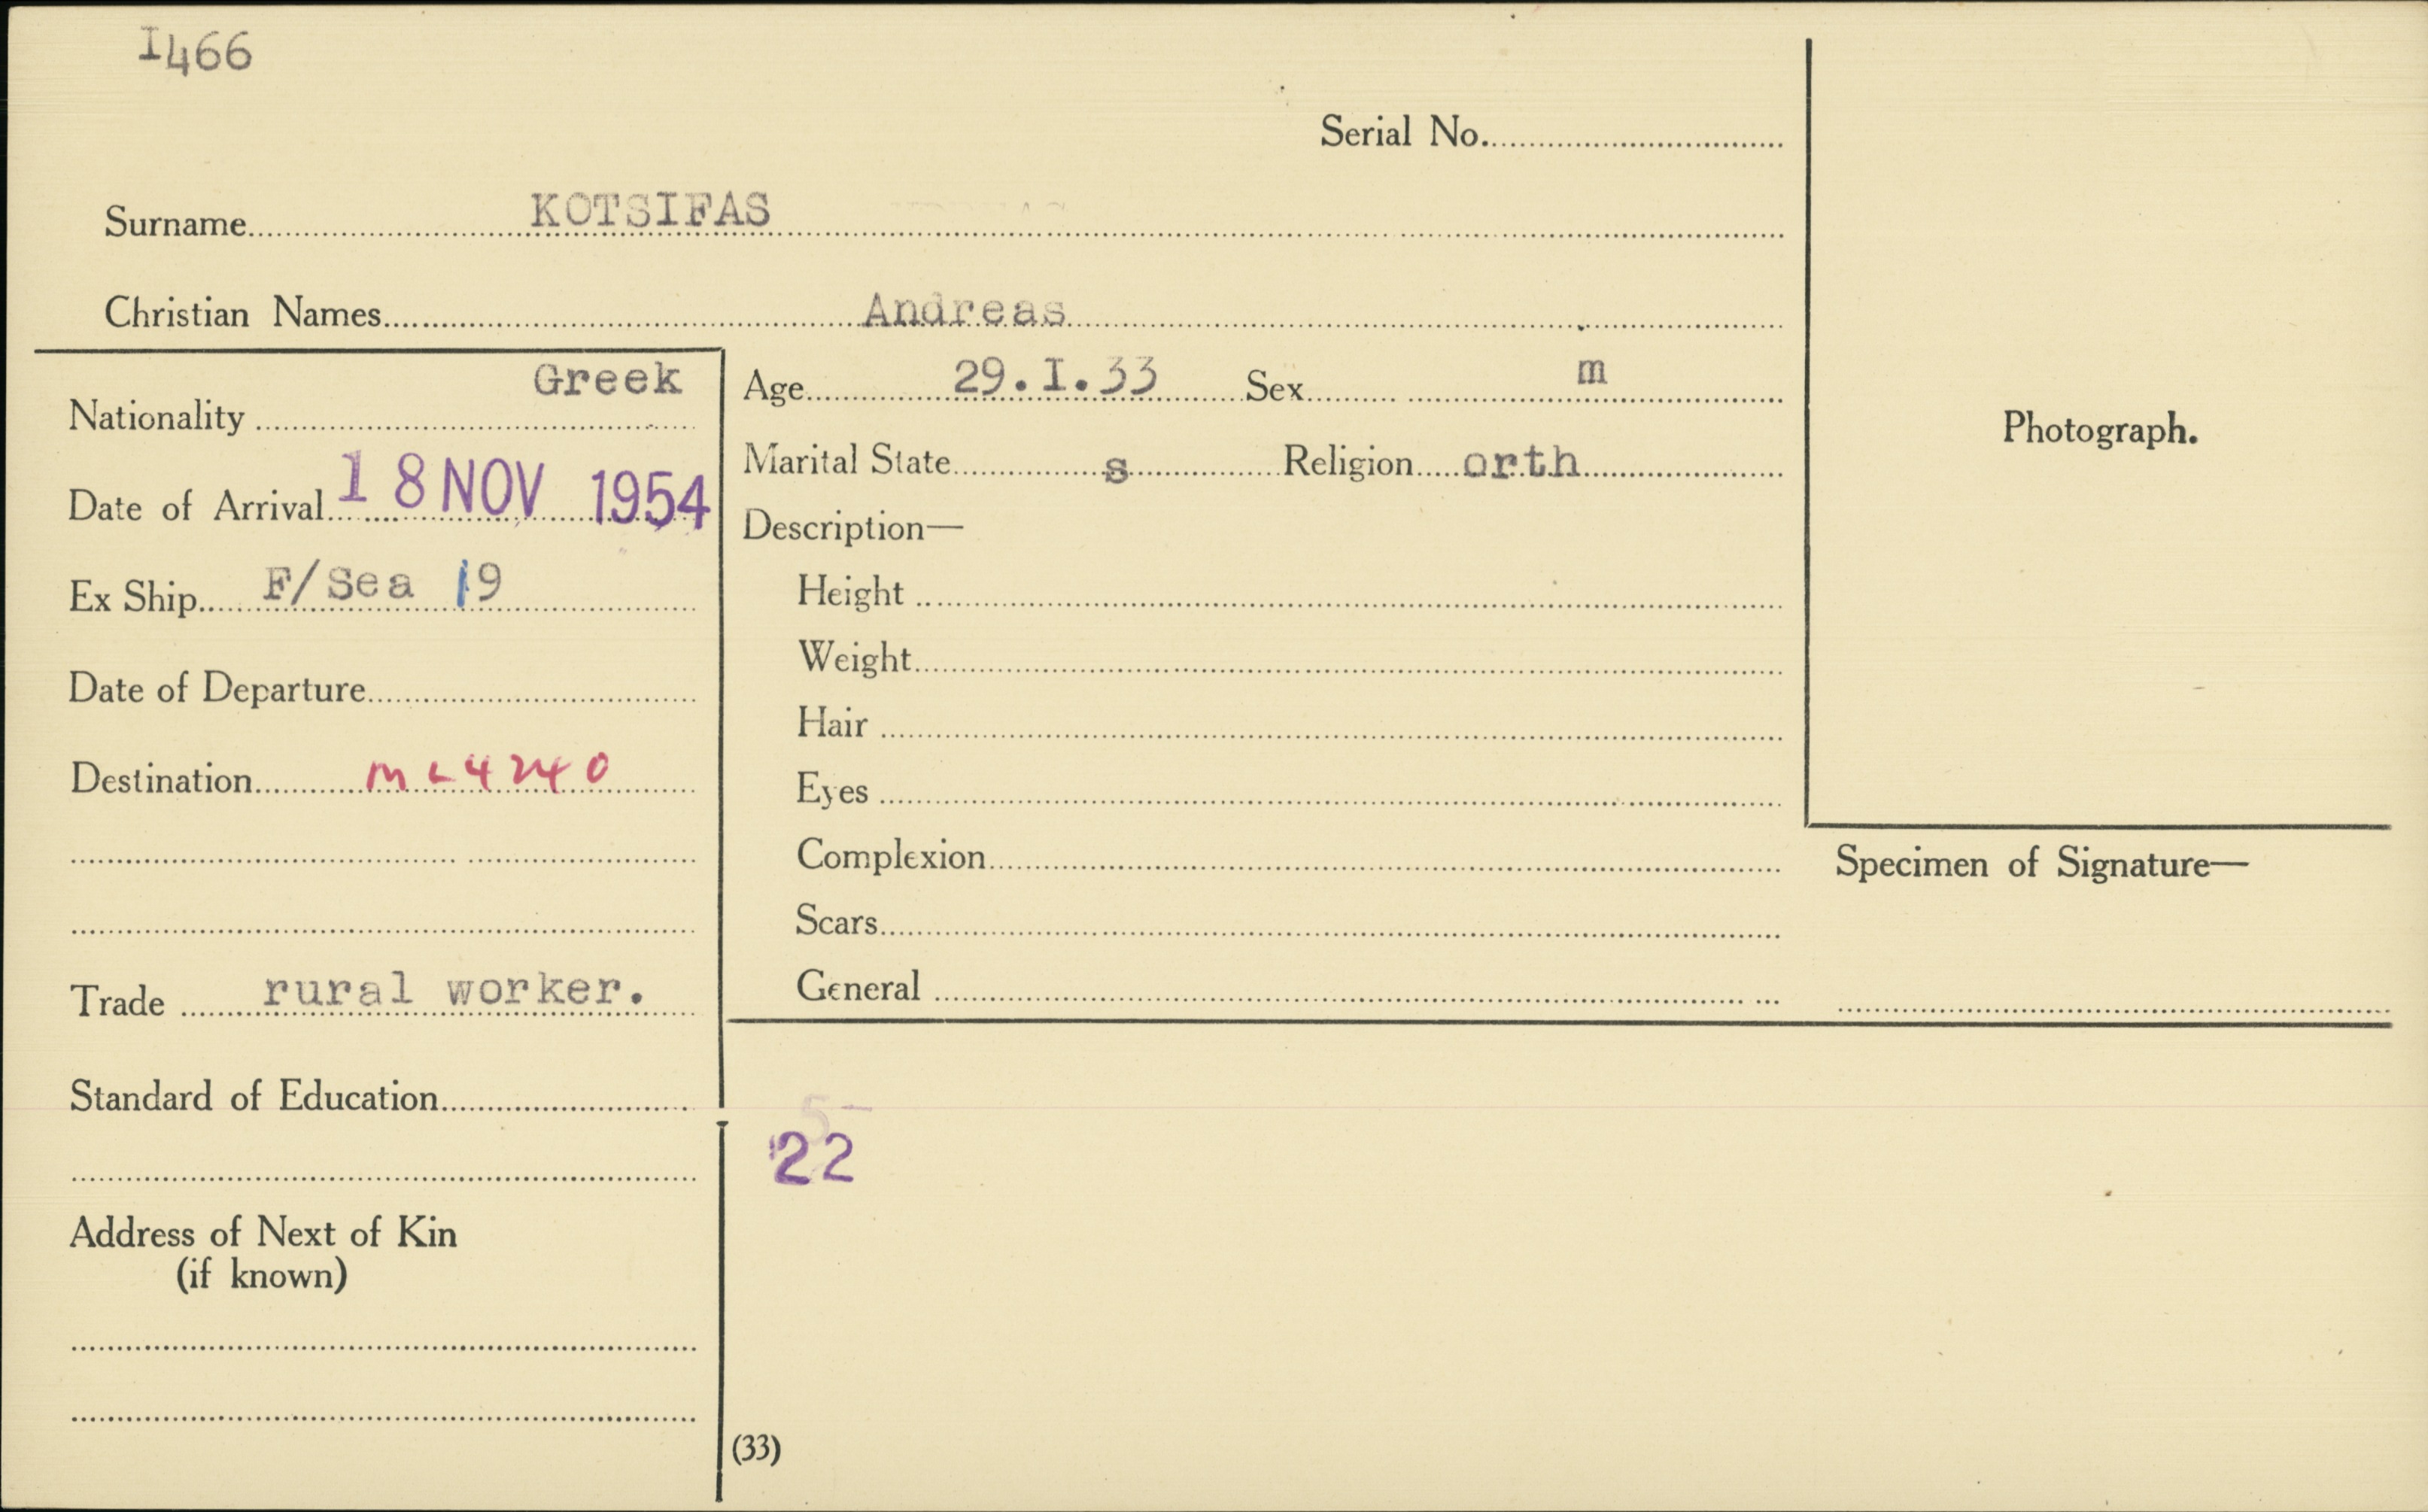 I466
Serial No.
Surname KOTSIFAS
Christian Names Andreas
Nationality Greek
Date of Arrival 18 NOV 1954
Ex Ship F/Sea 19
Date of Departure
Destination ML4240
Trade rural worker.
Standard of Education
Address of Next of Kin
(if known)
Age 29.I.33 Sex m
Marital State s Religion orth
Description—
Height
Weight
Hair
Eyes
Complexion
Scars
General
Photograph.
Specimen of Signature—
22
(33)